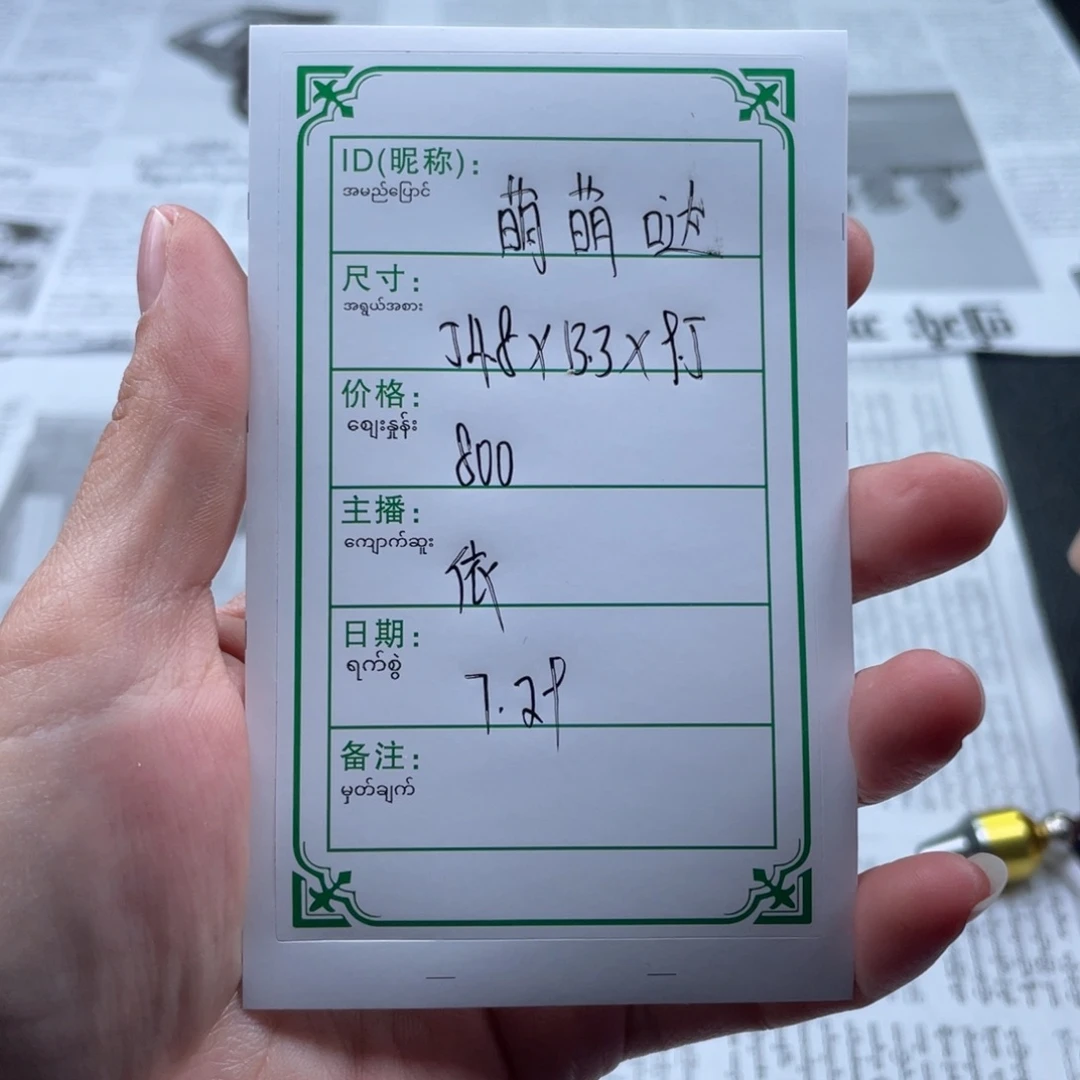 ID(昵称): 萌萌哒
အမည်ပြောင်
尺寸: 54.8×13.3×9.5
အရွယ်အစား
价格:
ဈေးနှုန်း 800
主播:
ကျောက်ဆူး 依
日期:
ရက်စွဲ 7.29
备注:
မှတ်ချက်